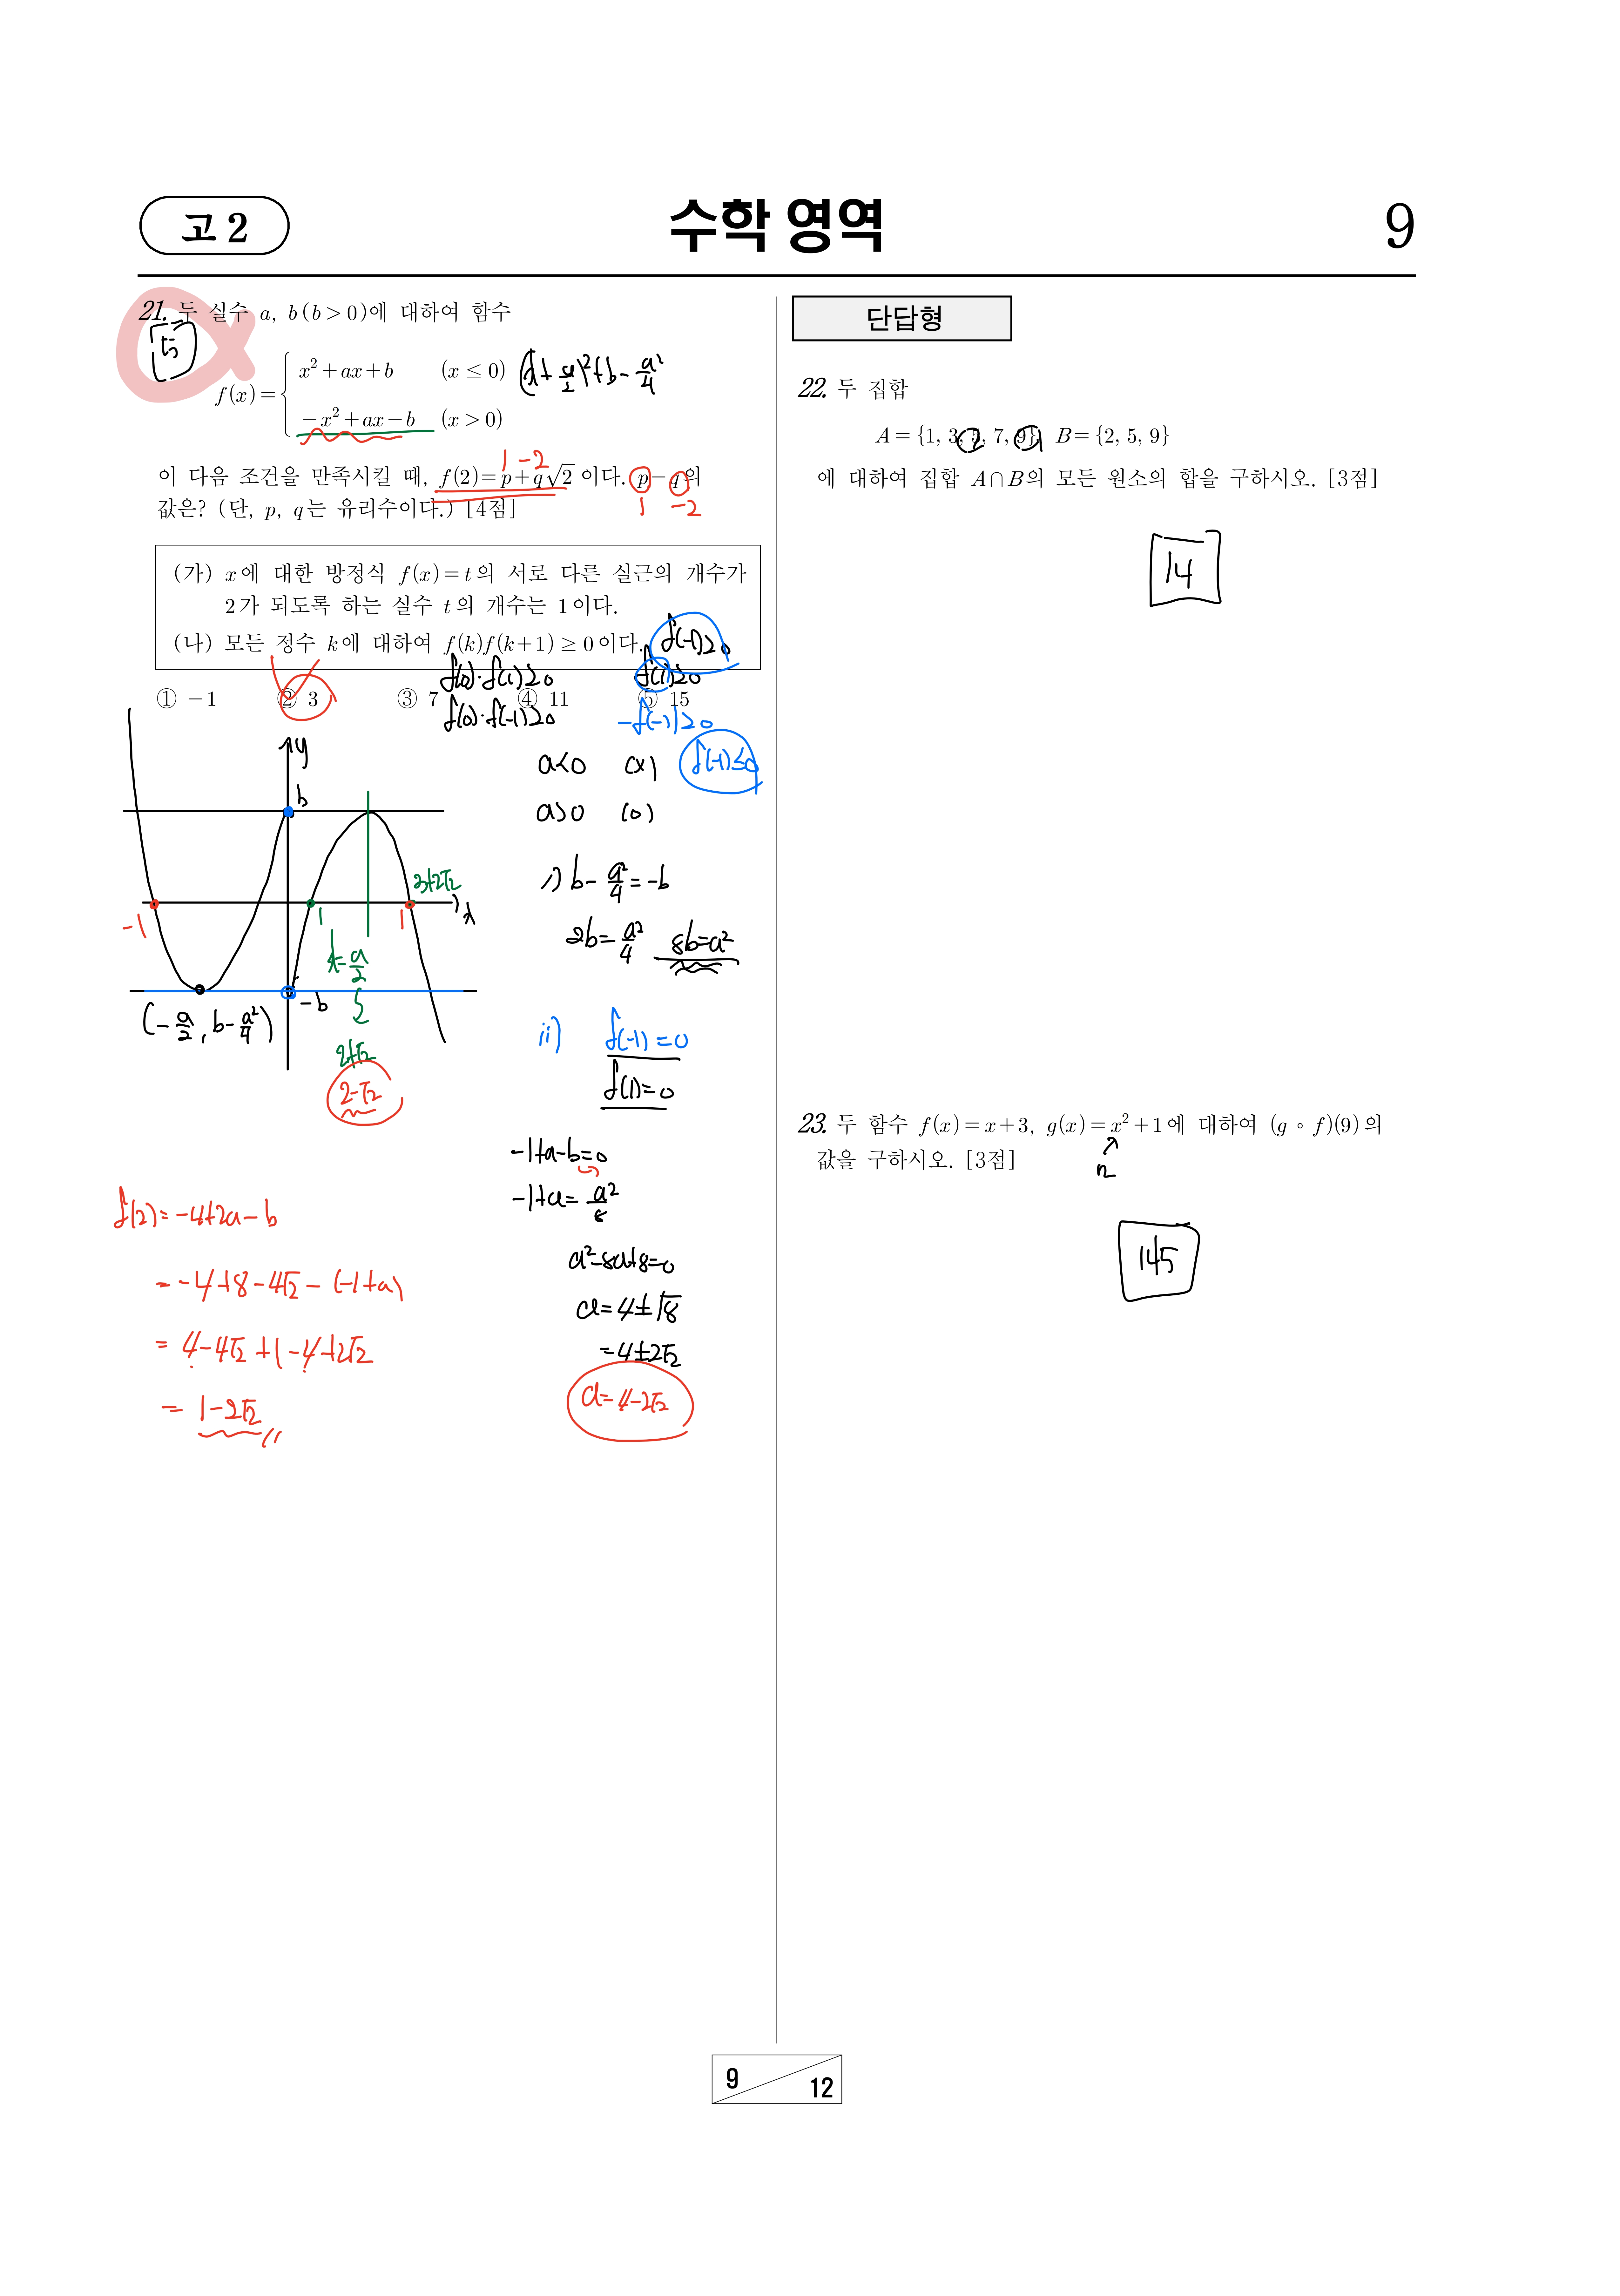 고 2
수학 영역
9
21. 두 실수 a, b (b > 0)에 대하여 함수
5
f(x) = { x² + ax + b (x ≤ 0)
(x + a/2)² + b - a²/4
-x² + ax - b (x > 0)
1 -2
이 다음 조건을 만족시킬 때, f(2) = p + q√2 이다. p - q의
값은? (단, p, q는 유리수이다.) [4점]
1 -2
(가) x에 대한 방정식 f(x) = t의 서로 다른 실근의 개수가
2가 되도록 하는 실수 t의 개수는 1이다.
(나) 모든 정수 k에 대하여 f(k)f(k+1) ≥ 0이다.
f(-1)≥0
f(0)·f(1)≥0
f(1)≥0
① -1 ② 3 ③ 7 ④ 11 ⑤ 15
f(0)·f(-1)≥0
-f(-1)≥0
f(-1)≤0
a<0 (x)
a>0 (o)
y
b
x
-1
1
1
3+2√2
-b
(-a/2, b-a²/4)
x=a/2
2+√2
2-√2
i) b - a²/4 = -b
2b = a²/4 8b=a²
ii) f(-1)=0
f(1)=0
-1+a-b=0
-1+a = a²/8
a²-8a+8=0
a=4±√8
=4±2√2
a=4-2√2
f(2)=-4+2a-b
= -4+8-4√2-(-1+a)
= 4-4√2+1-4+2√2
= 1-2√2
단답형
22. 두 집합
A = {1, 3, 5, 7, 9}, B = {2, 5, 9}
에 대하여 집합 A∩B의 모든 원소의 합을 구하시오. [3점]
14
23. 두 함수 f(x) = x + 3, g(x) = x² + 1에 대하여 (g ∘ f)(9)의
값을 구하시오. [3점]
12
145
9
12